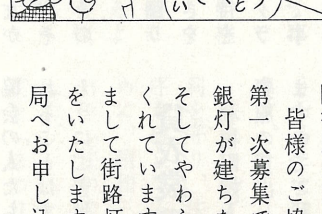 皆様のご協
第一次募集で
銀灯が建ちま
そしてやわら
くれています
まして街路灯
をいたします
局へお申し込